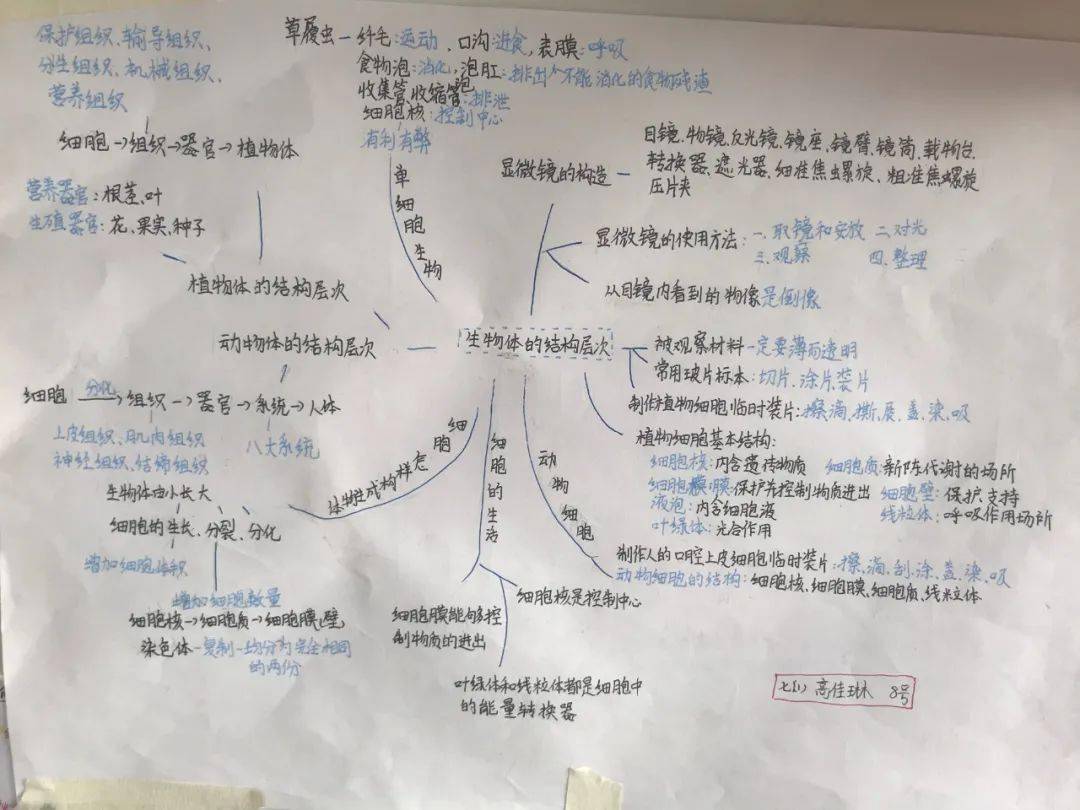 保护组织、输导组织、
分生组织、机械组织、
营养组织
细胞→组织→器官→植物体
营养器官：根茎、叶
生殖器官：花、果实、种子
植物体的结构层次
草履虫—纤毛：运动、口沟：进食，表膜：呼吸
食物泡：消化，泡肛：排出个不能消化的食物残渣
收集管、收缩管泡：排泄
细胞核：控制中心
有利有弊
单细胞生物
显微镜的构造—目镜、物镜、反光镜、镜座、镜臂、镜筒、载物台、
转换器、遮光器、细准焦虫螺旋、粗准焦螺旋
压片夹
显微镜的使用方法：一、取镜和安放 二、对光
三、观察 四、整理
从目镜内看到的物像是倒像
生物体的结构层次
被观察材料—一定要薄而透明
常用玻片标本：切片、涂片、装片
制作植物细胞临时装片：擦、滴、撕、展、盖、染、吸
植物细胞基本结构：
细胞核：内含遗传物质 细胞质：新陈代谢的场所
细胞膜：保护并控制物质进出 细胞壁：保护、支持
液泡：内含细胞液 线粒体：呼吸作用场所
叶绿体：光合作用
制作人的口腔上皮细胞临时装片：擦、滴、刮、涂、盖、染、吸
动物细胞的结构：细胞核、细胞膜、细胞质、线粒体
动物细胞
细胞的生活
细胞核是控制中心
细胞膜能够控
制物质的进出
叶绿体和线粒体都是细胞中
的能量转换器
细胞怎样构成物体
动物体的结构层次
细胞 分化→组织→器官→系统→人体
上皮组织、肌肉组织 八大系统
神经组织、结缔组织
生物体由小长大
细胞的生长、分裂、分化
增加细胞体积
增加细胞数量
细胞核→细胞质→细胞膜（壁）
染色体—复制—均分为完全相同
的两份
七(1) 高佳琳 8号